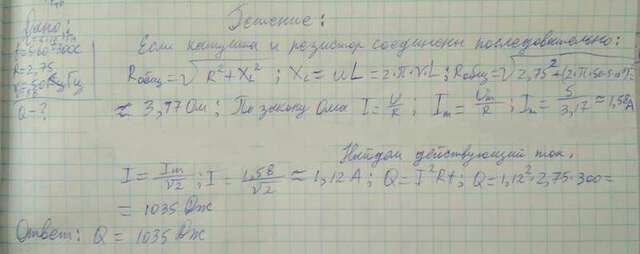 Дано:
Решение:
Если катушка и резистор соединены последовательно:
R = 2,75
Rобщ = √R² + X_L² ; X_L = ωL = 2·π·ν·L ; Rобщ = √2,75² + (2·π·50·5·10⁻³)²
Q - ?
≈ 3,17 Ом ; По закону Ома I = U/R ; I_m = U_m/R ; I_m = 5/3,17 ≈ 1,58 А
Найдем действующий ток,
I = I_m/√2 ; I = 1,58/√2 ≈ 1,12 А ; Q = I²Rt ; Q = 1,12²·2,75·300 =
= 1035 Дж
Ответ: Q = 1035 Дж